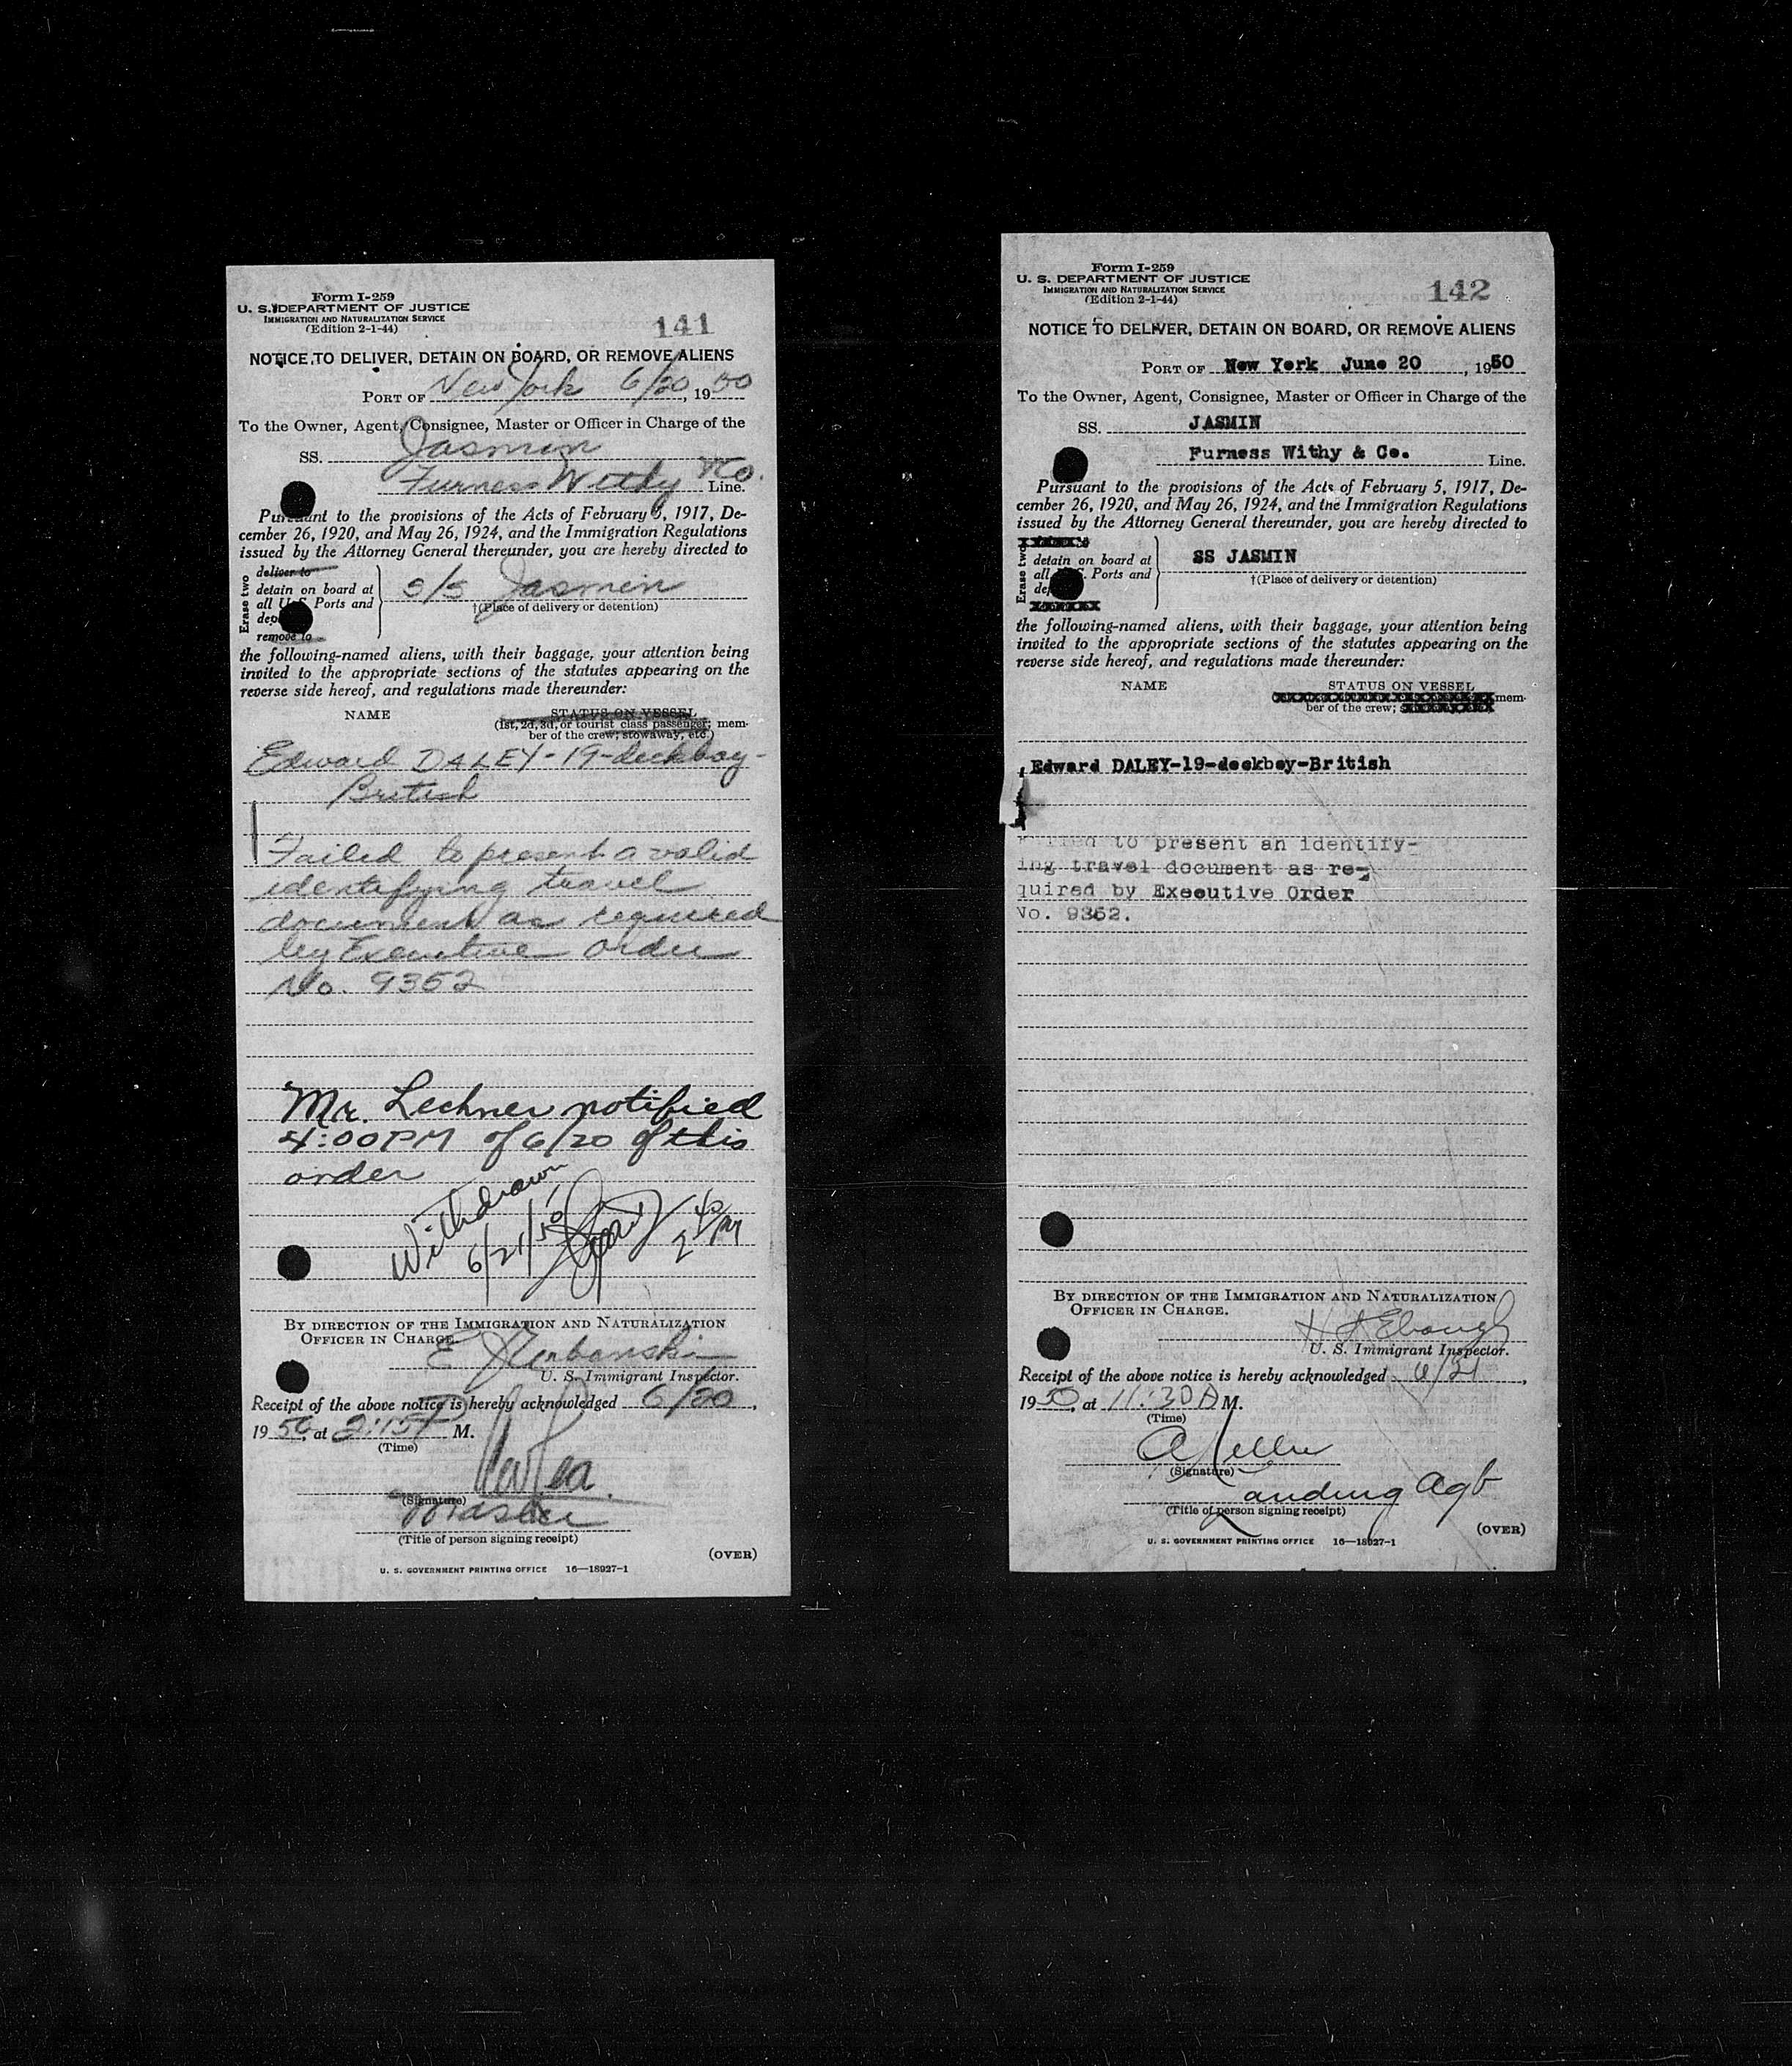 Form I-259
U. S. DEPARTMENT OF JUSTICE
IMMIGRATION AND NATURALIZATION SERVICE
(Edition 2-1-44)
141
NOTICE TO DELIVER, DETAIN ON BOARD, OR REMOVE ALIENS
PORT OF New York 6/20, 1950
To the Owner, Agent, Consignee, Master or Officer in Charge of the
SS. Jasmin
Furness Withy & Co. Line.
Pursuant to the provisions of the Acts of February 5, 1917, De-
cember 26, 1920, and May 26, 1924, and the Immigration Regulations
issued by the Attorney General thereunder, you are hereby directed to
Erase two
deliver to
detain on board at
all U.S. Ports and
remove to
S/S Jasmin
†(Place of delivery or detention)
the following-named aliens, with their baggage, your attention being
invited to the appropriate sections of the statutes appearing on the
reverse side hereof, and regulations made thereunder:
NAME
STATUS ON VESSEL
(1st, 2d, 3d, or tourist class passenger; mem-
ber of the crew; stowaway, etc.)
Edward DALEY-19-deckboy-
British
Failed to present a valid
identifying travel
document as required
by Executive Order
No. 9352
Mr. Lechner notified
4:00PM of 6/20 of this
order
Withdrawn
6/21/50
2 40 PM
BY DIRECTION OF THE IMMIGRATION AND NATURALIZATION
OFFICER IN CHARGE.
E J Urbanski
U. S. Immigrant Inspector.
Receipt of the above notice is hereby acknowledged 6/20,
1950, at 2:15 P M.
(Time)
(Signature)
Master
(Title of person signing receipt)
(OVER)
U. S. GOVERNMENT PRINTING OFFICE 16—18927-1
Form I-259
U. S. DEPARTMENT OF JUSTICE
IMMIGRATION AND NATURALIZATION SERVICE
(Edition 2-1-44)
142
NOTICE TO DELIVER, DETAIN ON BOARD, OR REMOVE ALIENS
PORT OF New York June 20, 1950
To the Owner, Agent, Consignee, Master or Officer in Charge of the
SS. JASMIN
Furness Withy & Co. Line.
Pursuant to the provisions of the Acts of February 5, 1917, De-
cember 26, 1920, and May 26, 1924, and the Immigration Regulations
issued by the Attorney General thereunder, you are hereby directed to
Erase two
detain on board at
all Ports and
SS JASMIN
†(Place of delivery or detention)
the following-named aliens, with their baggage, your attention being
invited to the appropriate sections of the statutes appearing on the
reverse side hereof, and regulations made thereunder:
NAME
STATUS ON VESSEL
mem-
ber of the crew;
Edward DALEY-19-deckboy-British
to present an identify-
ing travel document as re-
quired by Executive Order
No. 9352.
BY DIRECTION OF THE IMMIGRATION AND NATURALIZATION
OFFICER IN CHARGE.
H A Ebaugh
U. S. Immigrant Inspector.
Receipt of the above notice is hereby acknowledged 6/21,
1950, at 11:30 A M.
(Time)
(Signature)
Landing Agt
(Title of person signing receipt)
(OVER)
U. S. GOVERNMENT PRINTING OFFICE 16—18927-1